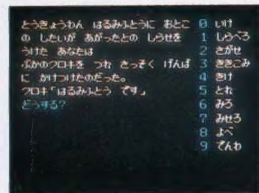 とうきょうわん はるみふとうに おとこ
の したいが あがったとの しらせを
うけた あなたは
ぶかのクロキを つれ さっそく げんば
に かけつけたのだった。
クロキ「はるみふとう です」
どうする?
0 いけ
1 しらべろ
2 さがせ
3 ききこみ
4 きけ
5 とれ
6 みろ
7 みせろ
8 よべ
9 でんわ